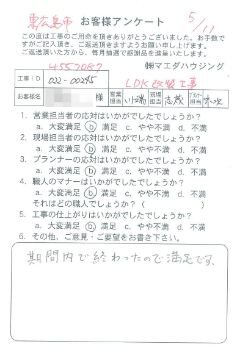 東広島市 お客様アンケート 5/11
この度は工事のご用命を頂きありがとうございます。お手数で
すがご記入頂き、ご返送頂きますようお願い申し上げます。
ご返送頂いた方から、毎月抽選で感謝品を進呈いたします。
4557087 ㈱マエダハウジング
工事ID 002-00245 LDK改装工事
お客様名 様 営業担当 現場担当 志茂
1. 営業担当者の応対はいかがでしたでしょうか?
a. 大変満足 b. 満足 c. やや不満 d. 不満
2. 現場担当者の応対はいかがでしたでしょうか?
a. 大変満足 b. 満足 c. やや不満 d. 不満
3. プランナーの応対はいかがでしたでしょうか?
a. 大変満足 b. 満足 c. やや不満 d. 不満
4. 職人のマナーはいかがでしたでしょうか?
a. 大変満足 b. 満足 c. やや不満 d. 不満
それはどの職人でしょうか?( )
5. 工事の仕上がりはいかがでしたでしょうか?
a. 大変満足 b. 満足 c. やや不満 d. 不満
6. その他、ご意見・ご要望をお書き下さい。
期間内で終わったので満足です。